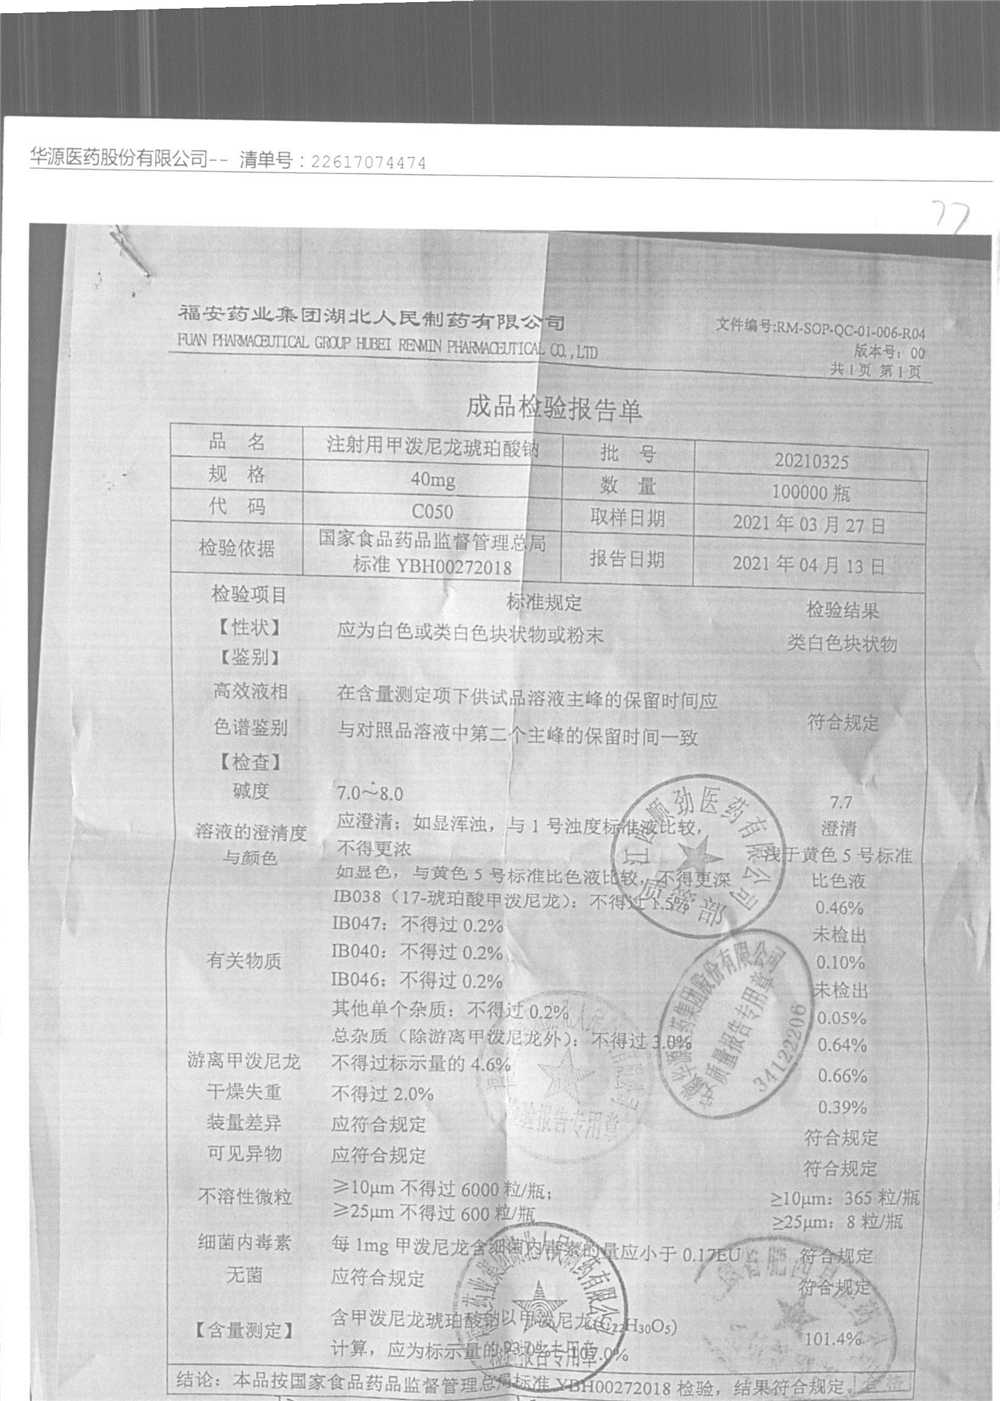 华源医药股份有限公司-- 清单号：22617074474
77
福安药业集团湖北人民制药有限公司
FUAN PHARMACEUTICAL GROUP HUBEI RENMIN PHARMACEUTICAL CO.,LTD
文件编号:RM-SOP-QC-01-006-R04
版本号：00
共1页 第1页
成品检验报告单
品 名 注射用甲泼尼龙琥珀酸钠 批 号 20210325
规 格 40mg 数 量 100000 瓶
代 码 C050 取样日期 2021 年 03 月 27 日
检验依据 国家食品药品监督管理总局 报告日期 2021 年 04 月 13 日
标准 YBH00272018
检验项目 标准规定 检验结果
【性状】 应为白色或类白色块状物或粉末 类白色块状物
【鉴别】
高效液相 在含量测定项下供试品溶液主峰的保留时间应
色谱鉴别 与对照品溶液中第二个主峰的保留时间一致 符合规定
【检查】
碱度 7.0～8.0 7.7
溶液的澄清度 应澄清；如显浑浊，与 1 号浊度标准液比较， 澄清
与颜色 不得更浓 浅于黄色 5 号标准
如显色，与黄色 5 号标准比色液比较，不得更深 比色液
IB038（17-琥珀酸甲泼尼龙）：不得过 1.5% 0.46%
IB047：不得过 0.2% 未检出
有关物质 IB040：不得过 0.2% 0.10%
IB046：不得过 0.2% 未检出
其他单个杂质：不得过 0.2% 0.05%
总杂质（除游离甲泼尼龙外）：不得过 3.0% 0.64%
游离甲泼尼龙 不得过标示量的 4.6% 0.66%
干燥失重 不得过 2.0% 0.39%
装量差异 应符合规定 符合规定
可见异物 应符合规定 符合规定
不溶性微粒 ≥10μm 不得过 6000 粒/瓶； ≥10μm：365 粒/瓶
≥25μm 不得过 600 粒/瓶 ≥25μm：8 粒/瓶
细菌内毒素 每 1mg 甲泼尼龙含细菌内毒素的量应小于 0.17EU 符合规定
无菌 应符合规定 符合规定
【含量测定】 含甲泼尼龙琥珀酸钠以甲泼尼龙(C₂₂H₃₀O₅)
计算，应为标示量的 93.0%～107.0% 101.4%
结论：本品按国家食品药品监督管理总局标准 YBH00272018 检验，结果符合规定。
江西顺劲医药有限公司
质管部
安徽华源医药集团股份有限公司
质量报告专用章
34122206
检验报告专用章
福安药业集团湖北人民制药有限公司
检验报告专用章